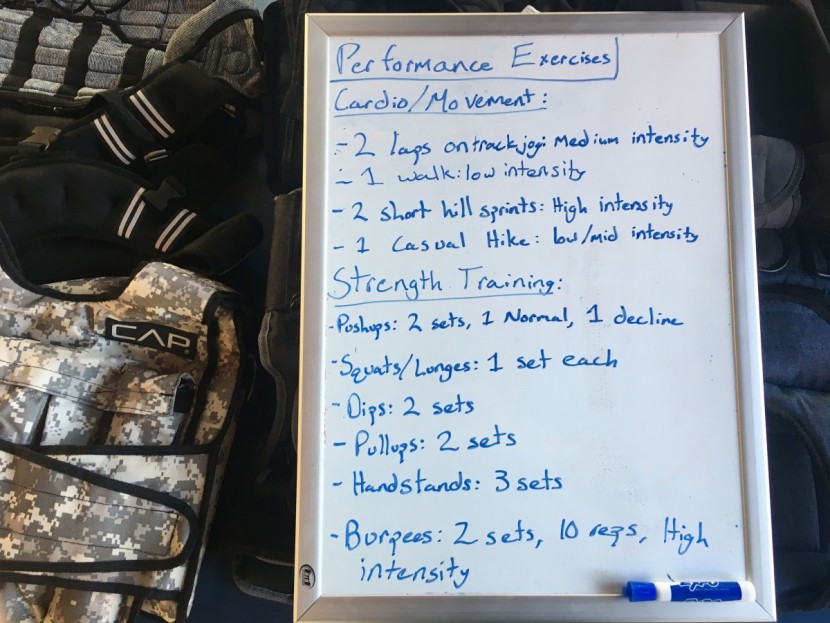 Performance Exercises
Cardio/Movement:
- 2 laps on track jog: Medium intensity
- 1 walk: low intensity
- 2 short hill sprints: High intensity
- 1 Casual Hike: low/mid intensity
Strength Training:
- Pushups: 2 sets, 1 Normal, 1 decline
- Squats/Lunges: 1 set each
- Dips: 2 sets
- Pullups: 2 sets
- Handstands: 3 sets
- Burpees: 2 sets, 10 reps, High
intensity
CAP
EXPO